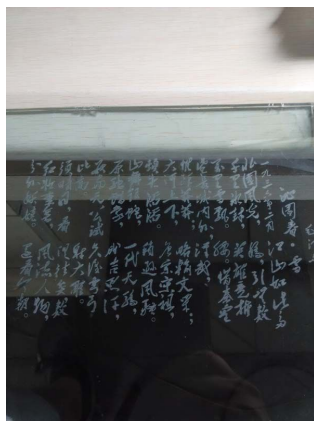 沁园春·雪
一九三六年二月
北国风光
千里冰封
万里雪飘
望长城内外
惟余莽莽
大河上下
顿失滔滔
山舞银蛇
原驰蜡象
欲与天公试
比高
须晴日 看
红装素裹
分外妖娆
江山如此多
娇 引无数
英雄竞折
腰 惜秦皇
汉武
略输文采
唐宗宋祖
稍逊风骚
一代天骄
成吉思汗
只识弯弓
射大雕
俱往矣 数
风流人物
还看今朝